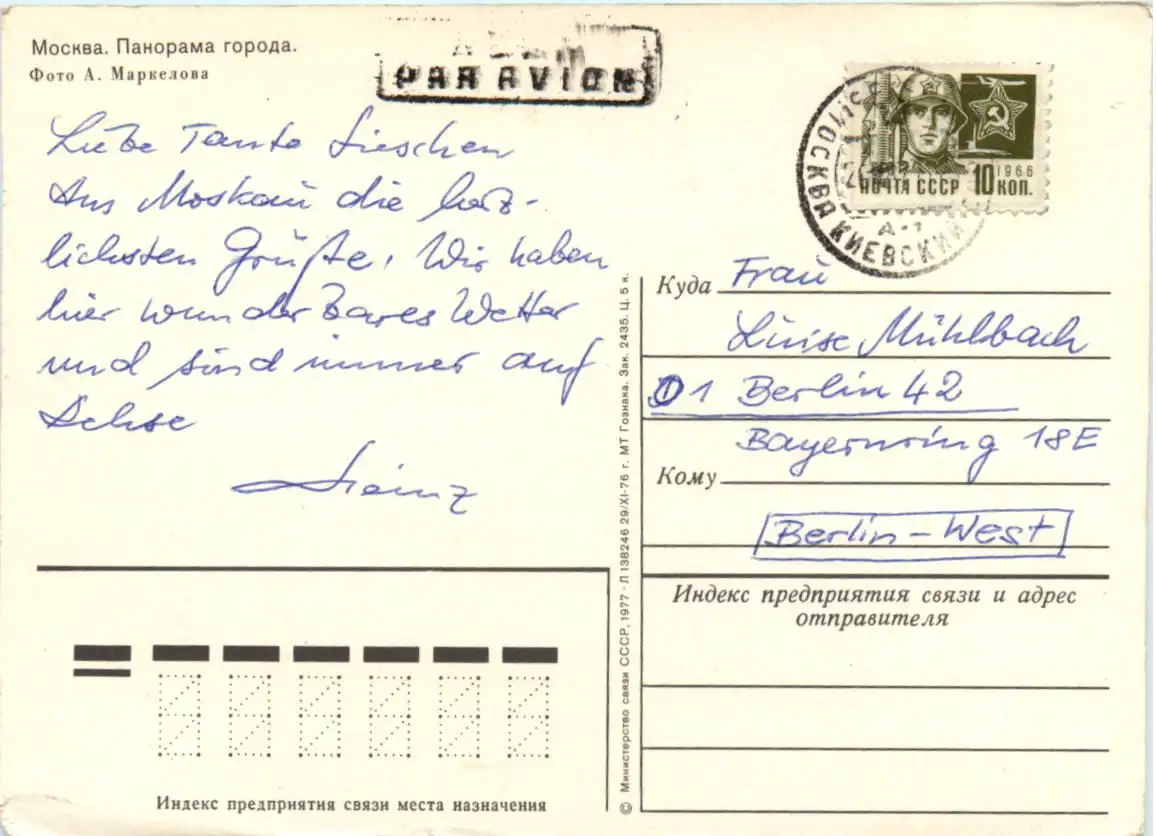 Москва. Панорама города.
Фото А. Маркелова
PAR AVION
Liebe Tante Lieschen
Aus Moskau die herz-
lichsten Grüße. Wir haben
hier wunderbares Wetter
und sind immer auf
Achse
Heinz
ПОЧТА СССР
1966
10 КОП.
МОСКВА КИЕВСКИЙ
А-1
Куда Frau
Luise Mühlbach
D 1 Berlin 42
Bayernring 18E
Кому
Berlin-West
Индекс предприятия связи и адрес
отправителя
© Министерство связи СССР, 1977 · Л 138246 29/XI-76 г. МТ Гознака. Зак. 2435. Ц. 5 к.
Индекс предприятия связи места назначения